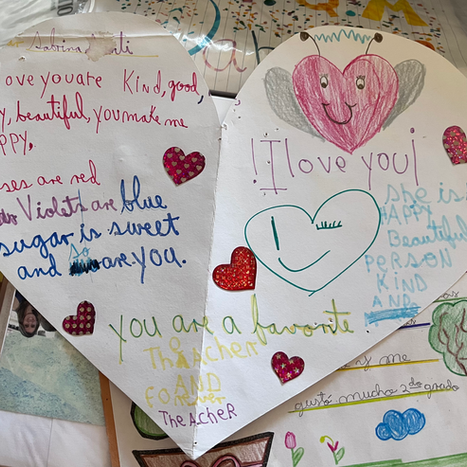 Sabrina
love you are Kind, good,
y, beautiful, you make me
PPY.
ses are red
Violets are blue
sugar is sweet
and so are you.
I love you
she is
HAPPY
Beautiful
PERSON
KIND
AND
YOU are a favorite
Theacher
AND
FOrever
TheAcHER
me
gustó mucho 2do grado